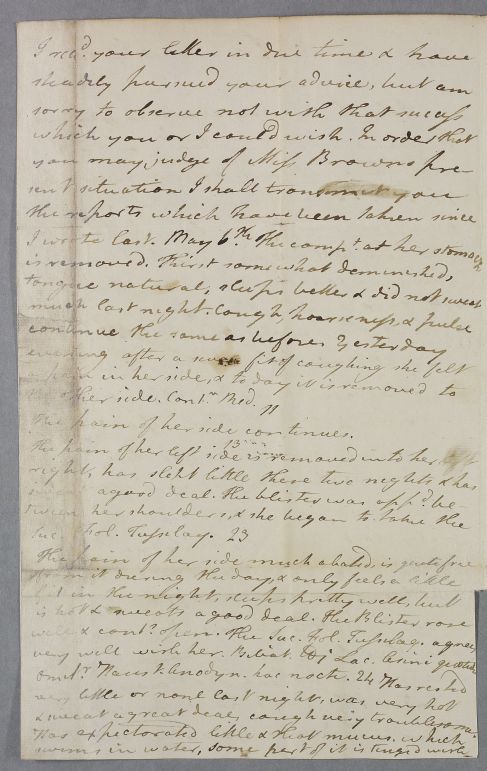 I recd. your letter in due time & have
steadily pursued your advice, but am
sorry to observe not with that success
which you or I could wish. In order that
you may judge of Miss Browns pre-
sent situation I shall transmit you
the reports which have been taken since
I wrote last. May 6th. The compt. at her stomach
is removed. Thirst somewhat deminished,
tongue natural, sleeps better & did not sweat
much last night. Cough, hoarseness, & pulse
continue the same as before. Yesterday
evening after a fit of coughing she felt
a pain in her side, & to day it is removed to
the other side. Contr. Med. 11
The pain of her side continues.
13
The pain of her left side is removed into her
right, has slept little these two nights & has
a good deal. The blister was appd. be-
tween her shoulders, & she began to take the
Suc. Fol. Tussilag. 23
The pain of her side much abated, is quite free
from it during the day, & only feels a little
in the night, sleeps pretty well, but
is hot & sweats a good deal. The Blister rose
well & contd. open. The Suc. Fol. Tussilag. agrees
very well with her. Bibat Lac. Asini
Omr. Haust. Anodyn. hac nocte. 24 Has rested
very little or none last night, was very hot
& sweat a great deal, cough very troublesome.
Has expectorated little & that mucus which
swims in water, some part of it is tinged with